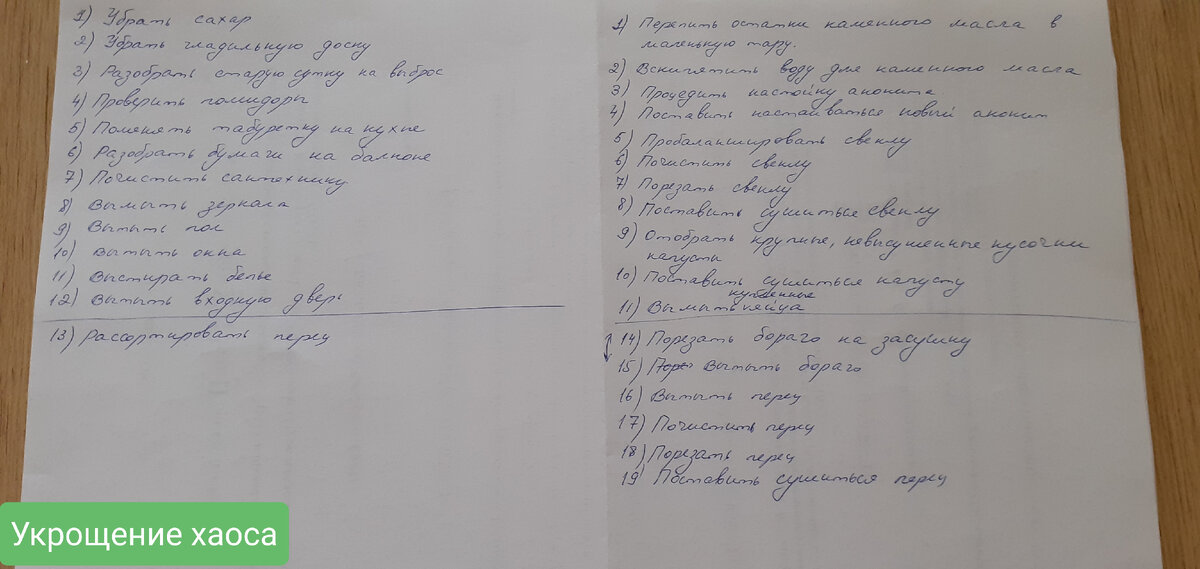 1) Убрать сахар
2) Убрать гладильную доску
3) Разобрать старую сумку на выброс
4) Проверить помидоры
5) Поменять табуретку на кухне
6) Разобрать бумаги на балконе
7) Почистить сантехнику
8) Вымыть зеркала
9) Вымыть пол
10) Вымыть окна
11) Выстирать белье
12) Вымыть входную дверь
13) Рассортировать перец
1) Перелить остатки каменного масла в
маленькую тару.
2) Вскипятить воду для каменного масла
3) Процедить настойку аконита.
4) Поставить настаиваться новый аконит
5) Пробланшировать свеклу
6) Почистить свеклу
7) Порезать свеклу
8) Поставить сушиться свеклу
9) Отобрать крупные, невысушенные кусочки
капусты
10) Поставить сушиться капусту
купленные
11) Вымыть яйца
14) Порезать бораго на засушку
15) Вымыть бораго
16) Вымыть перец
17) Почистить перец
18) Порезать перец
19) Поставить сушиться перец
Укрощение хаоса